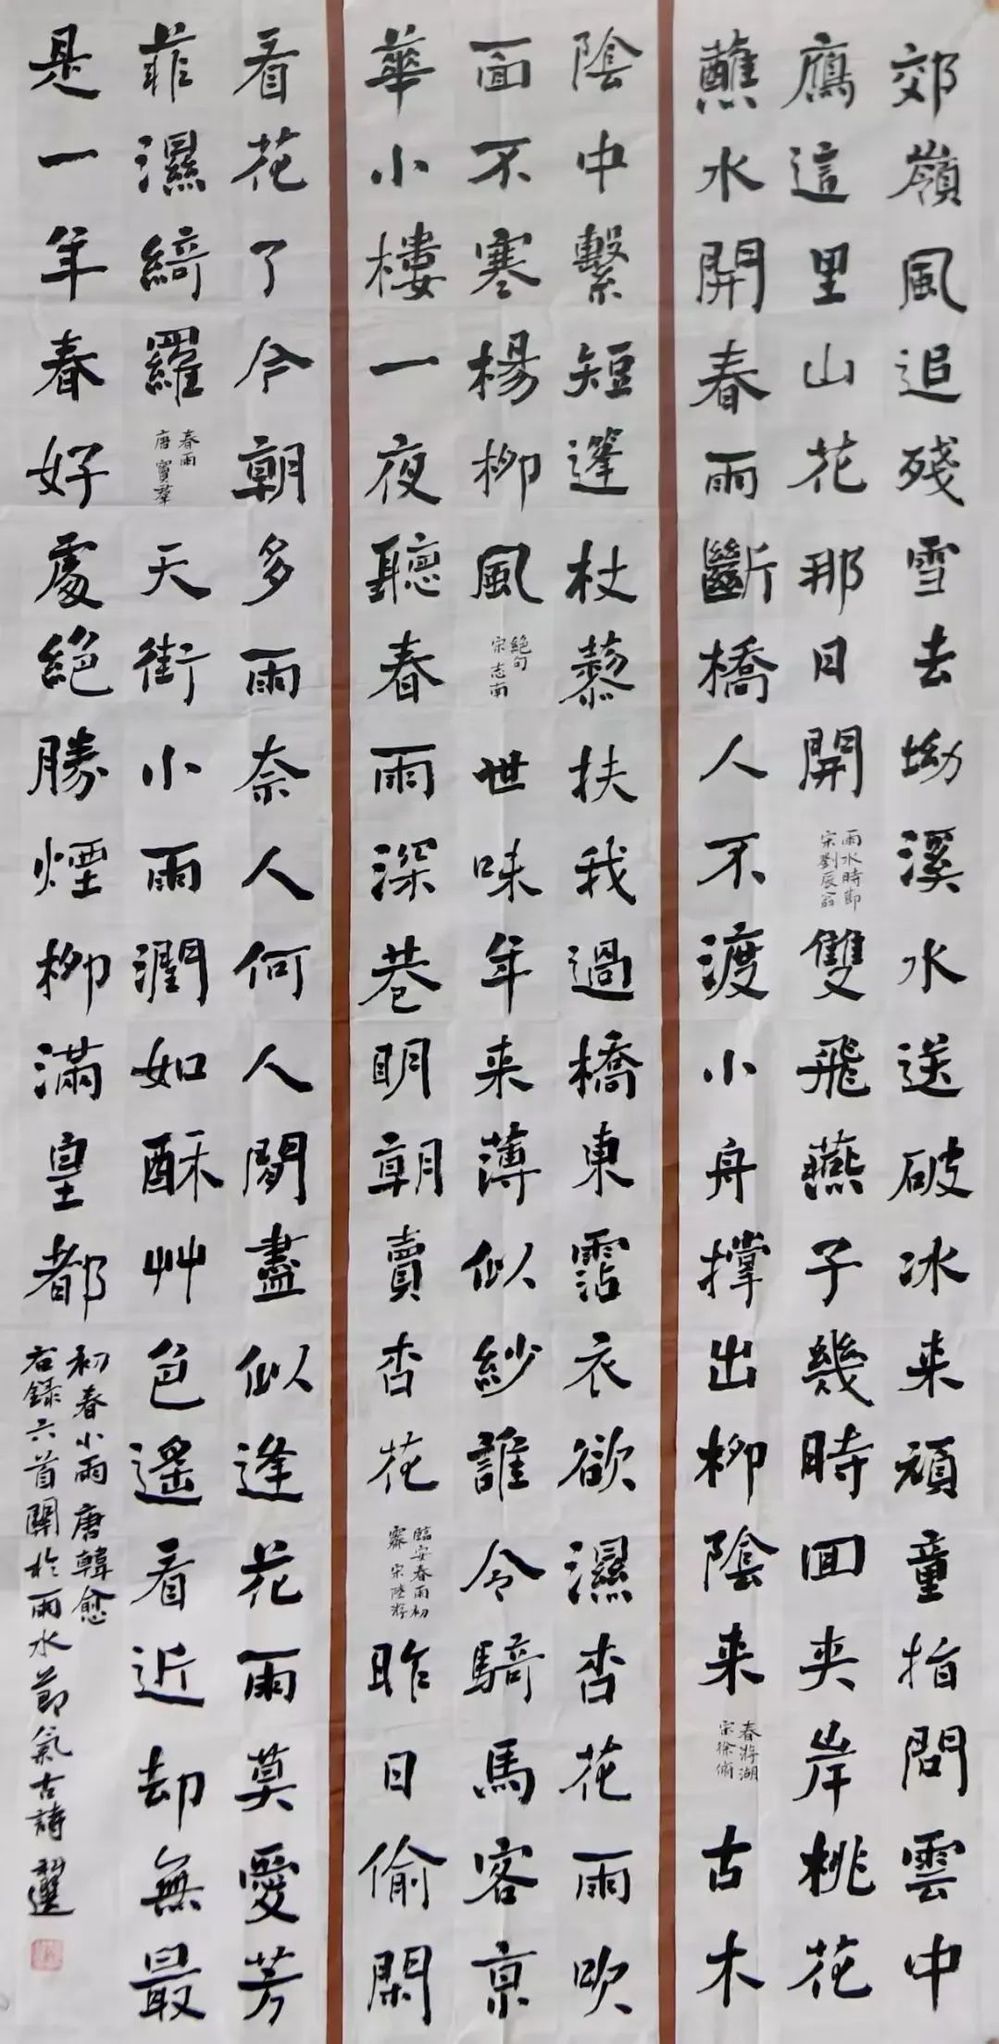 郊嶺風追殘雪去坳溪水送破冰来頑童指問雲中
鷹這里山花那日開
雨水時節
宋劉辰翁
雙飛燕子幾時回夾岸桃花
蘸水開春雨斷橋人不渡小舟撑出柳陰来
春游湖
宋徐俯
古木
陰中繫短篷杖藜扶我過橋東霑衣欲濕杏花雨吹
面不寒楊柳風
絕句
宋志南
世味年来薄似紗誰令騎馬客京
華小樓一夜聽春雨深巷明朝賣杏花
臨安春雨初
霽 宋陸游
昨日偷閑
看花了今朝多雨奈人何人間盡似逢花雨莫愛芳
菲濕綺羅
春雨
唐竇羣
天街小雨潤如酥艸色遙看近却無最
是一年春好處絕勝煙柳滿皇都
初春小雨 唐韓愈
右録六首關於雨水節氣古詩